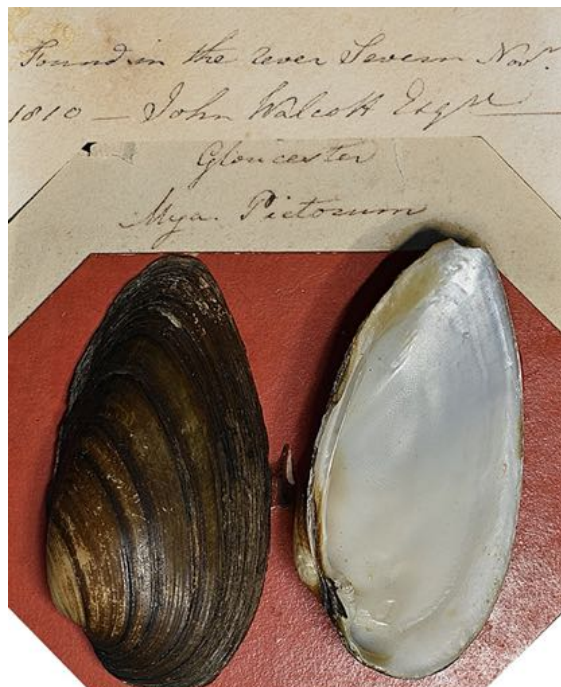 Found in the rever Severn Novr.
1810 — John Walcott Esqre
Gloucester
Mya. Pictorum